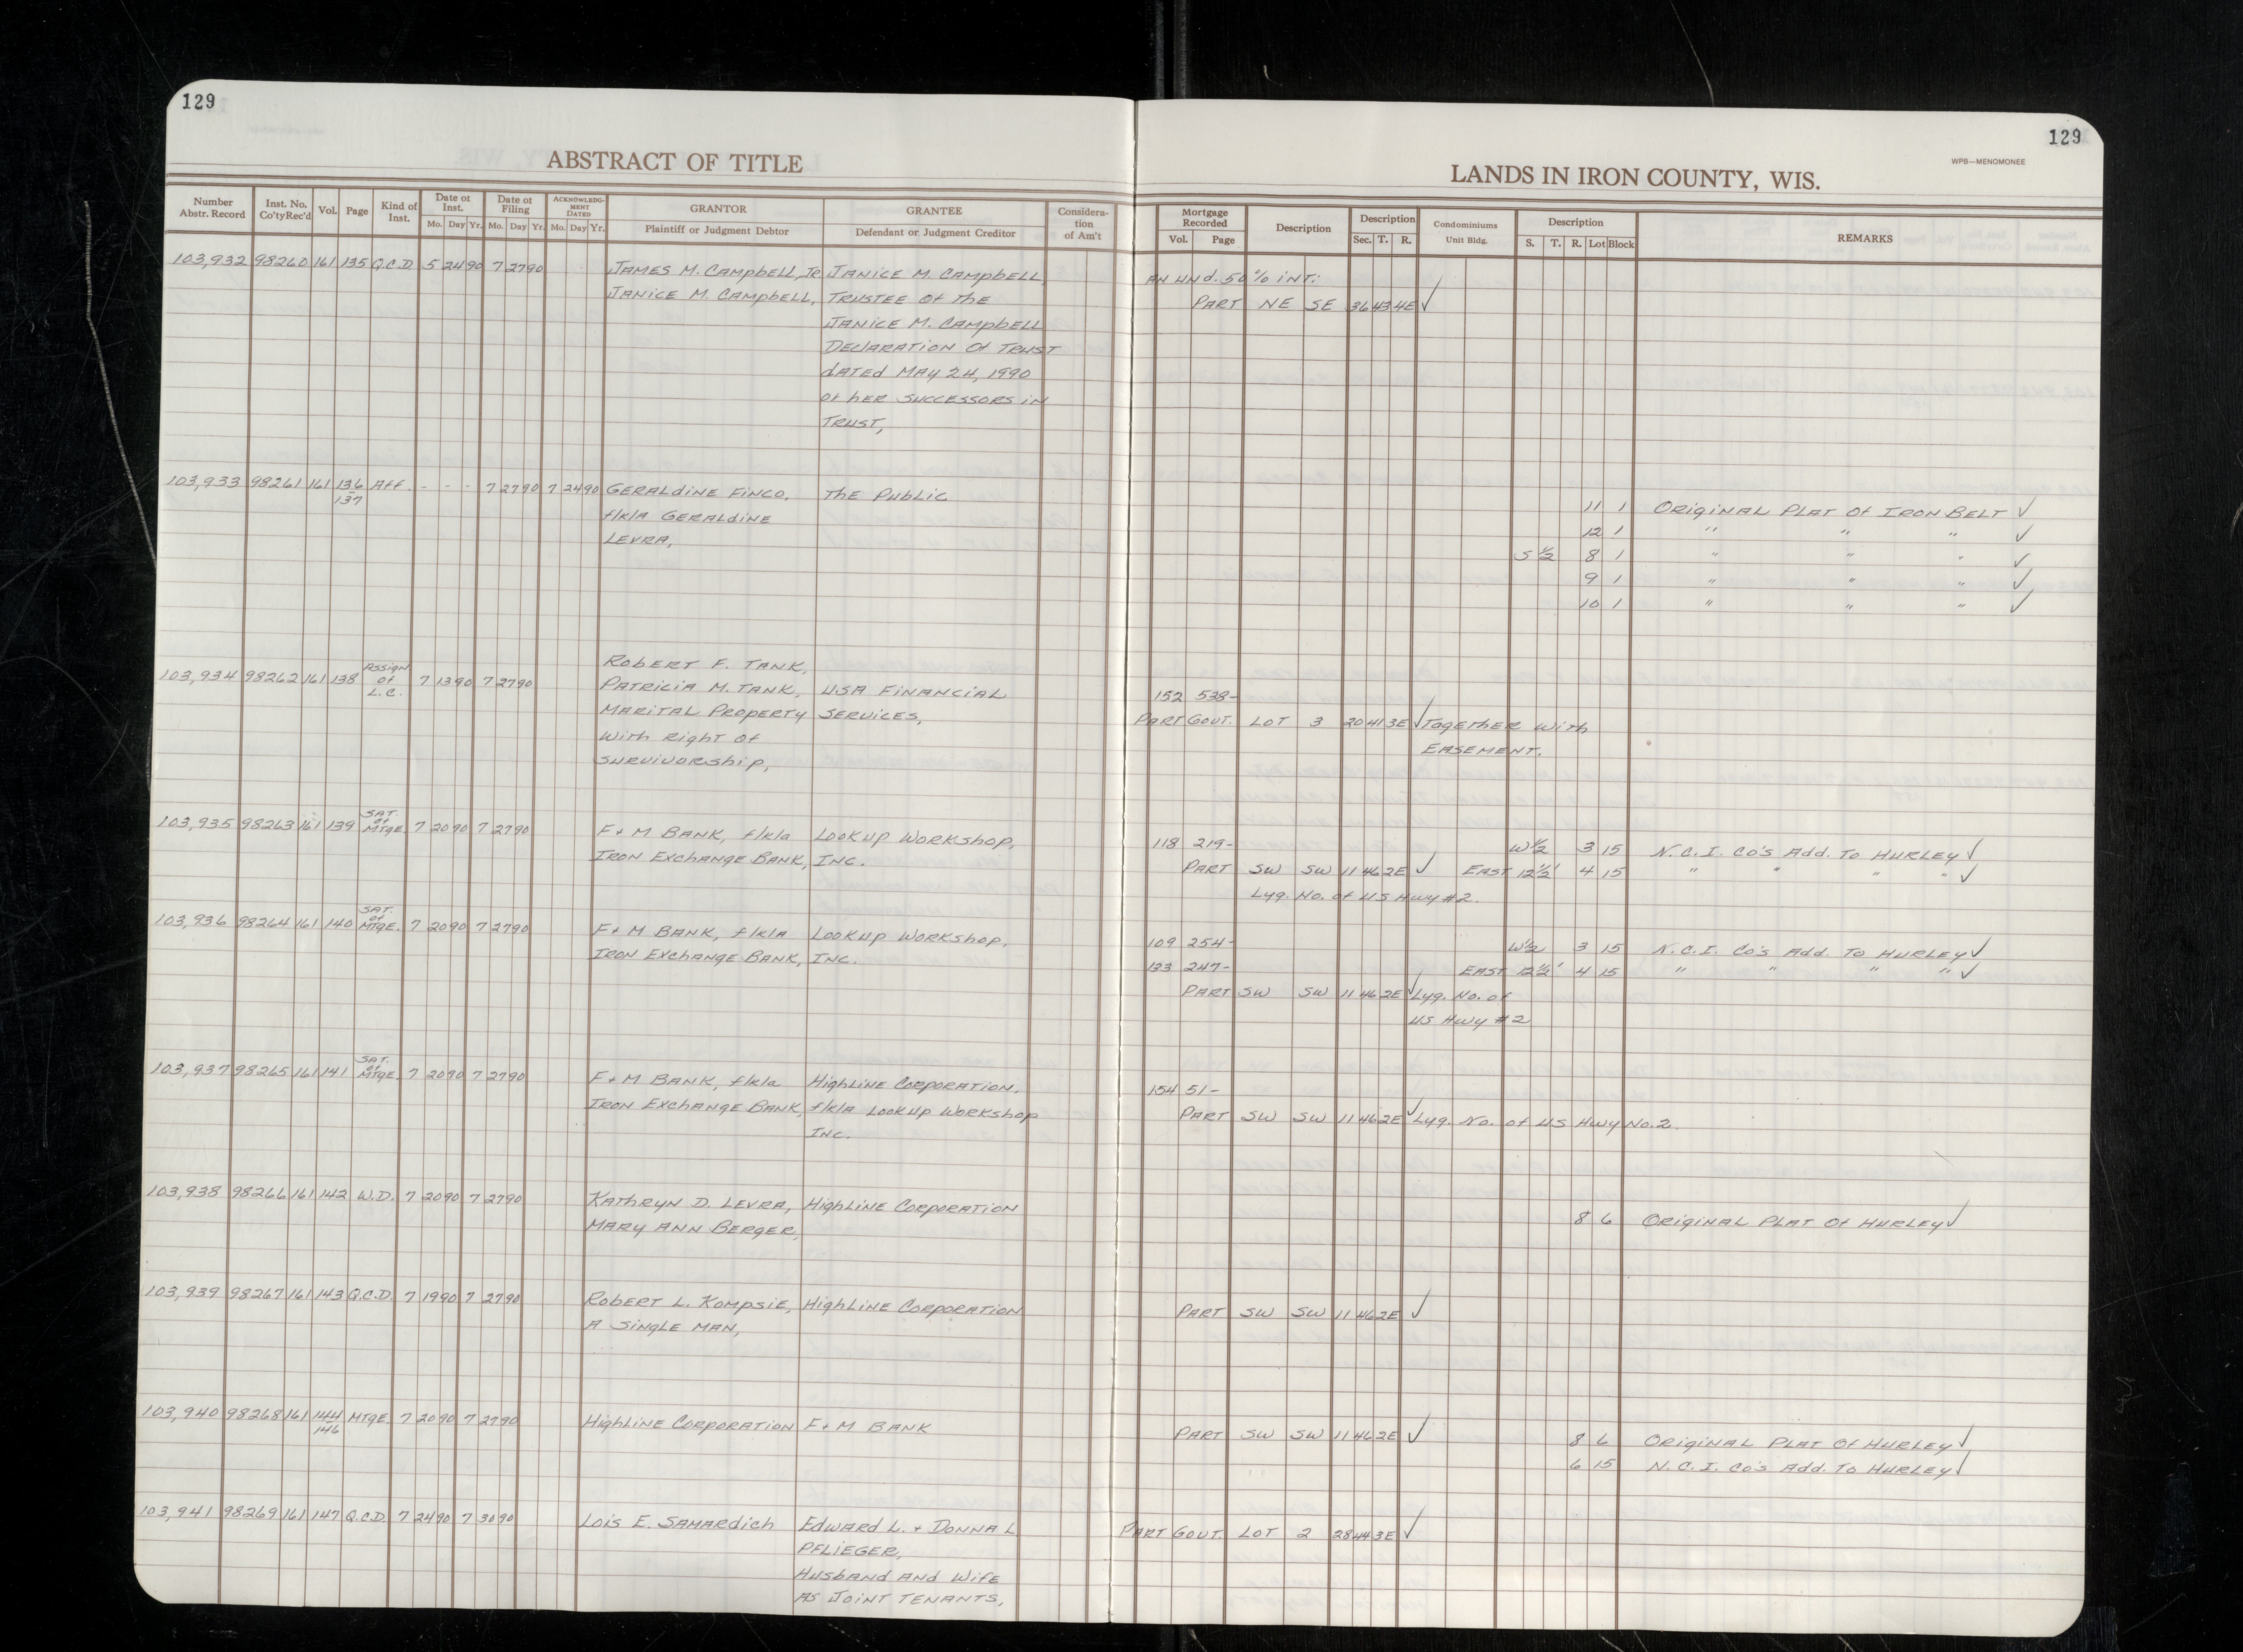 129
129
WPB—MENOMONEE
ABSTRACT OF TITLE
LANDS IN IRON COUNTY, WIS.
Number Abstr. Record | Inst. No. Co'ty Rec'd | Vol. | Page | Kind of Inst. | Date of Inst. Mo. Day Yr. | Date of Filing Mo. Day Yr. | ACKNOWLEDGMENT DATED Mo. Day Yr. | GRANTOR Plaintiff or Judgment Debtor | GRANTEE Defendant or Judgment Creditor | Consideration of Am't | Mortgage Recorded Vol. Page | Description | Description Sec. T. R. | Condominiums Unit Bldg. | Description S. T. R. Lot Block | REMARKS
103,932 98260 161 135 Q.C.D. 5 24 90 7 27 90 James M. Campbell, Jr. Janice M. Campbell, An und. 50% int:
Janice M. Campbell, Trustee of the Part NE SE 36 43 4E ✓
Janice M. Campbell
Declaration of Trust
dated May 24, 1990
or her successors in
Trust,
103,933 98261 161 136 Aff. - - - 7 27 90 7 24 90 Geraldine Finco, The Public 11 1 Original Plat of Iron Belt ✓
137 f/k/a Geraldine 12 1 " " " ✓
Levra, S 1/2 8 1 " " " ✓
9 1 " " " ✓
10 1 " " " ✓
Robert F. Tank,
103,934 98262 161 138 Assign of L.C. 7 13 90 7 27 90 Patricia M. Tank, USA Financial 152 538-
Marital Property Services, Part Gout. Lot 3 20 41 3E ✓ Together with
with right of Easement.
survivorship,
103,935 98263 161 139 Sat. of Mtge. 7 20 90 7 27 90 F + M Bank, f/k/a Lookup Workshop, 118 219- W 1/2 3 15 N.C.I. Co's Add. To Hurley ✓
Iron Exchange Bank, Inc. Part SW SW 11 46 2E ✓ East 12 1/2' 4 15 " " " " ✓
Lyg. No. of US Hwy #2.
103,936 98264 161 140 Sat. of Mtge. 7 20 90 7 27 90 F + M Bank, f/k/a Lookup Workshop, 109 254- W 1/2 3 15 N.C.I. Co's Add. To Hurley ✓
Iron Exchange Bank, Inc. 133 247- East 12 1/2' 4 15 " " " " ✓
Part SW SW 11 46 2E ✓ Lyg. No. of
US Hwy #2
103,937 98265 161 141 Sat. of Mtge. 7 20 90 7 27 90 F + M Bank, f/k/a Highline Corporation, 154 51-
Iron Exchange Bank, f/k/a Lookup Workshop Part SW SW 11 46 2E ✓ Lyg. No. of US Hwy No. 2.
Inc.
103,938 98266 161 142 W.D. 7 20 90 7 27 90 Kathryn D. Levra, Highline Corporation 8 6 Original Plat of Hurley ✓
Mary Ann Berger,
103,939 98267 161 143 Q.C.D. 7 19 90 7 27 90 Robert L. Kompsie, Highline Corporation Part SW SW 11 46 2E ✓
A Single Man,
103,940 98268 161 144 Mtge. 7 20 90 7 27 90 Highline Corporation F + M Bank Part SW SW 11 46 2E ✓ 8 6 Original Plat of Hurley ✓
146 6 15 N.C.I. Co's Add. To Hurley ✓
103,941 98269 161 147 Q.C.D. 7 24 90 7 30 90 Lois E. Samardich Edward L. + Donna L Part Gout. Lot 2 28 44 3E ✓
Pflieger,
Husband and Wife
As Joint Tenants,